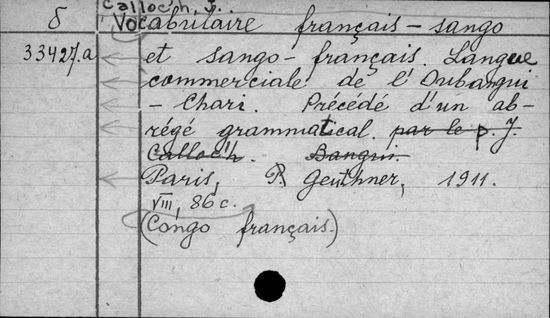 Calloc'h, J.
δ Vocabulaire français – sango
33427.a et sango – français. Langue
commerciale de l'Oubangui
– Chari. Précédé d'un ab-
régé grammatical. par le p. J.
Calloc'h. Bangui.
Paris, P. Geuthner, 1911.
VIII, 86 c.
(Congo français.)